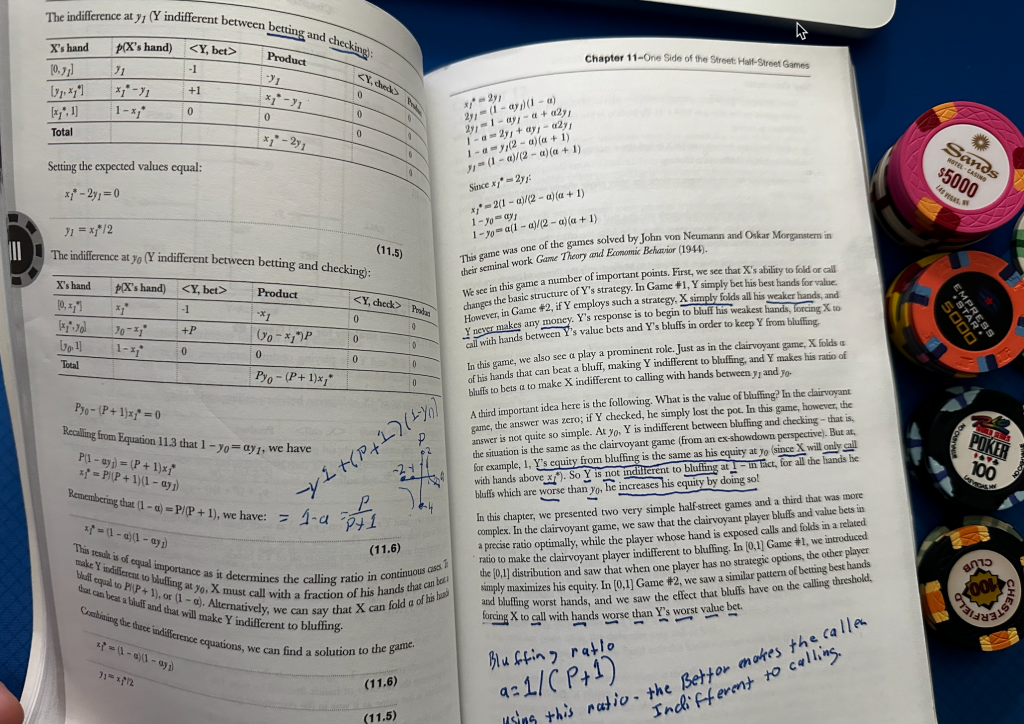 The indifference at y₁ (Y indifferent between betting and checking):
X's hand p(X's hand) <Y, bet> Product <Y, check>
[0, y₁] y₁ -1 -y₁ 0 0
[y₁, x₁*] x₁* – y₁ +1 x₁* – y₁ 0 0
[x₁*, 1] 1 – x₁* 0 0 0 0
Total x₁* – 2y₁ 0
Setting the expected values equal:
x₁* – 2y₁ = 0
y₁ = x₁*/2
(11.5)
The indifference at y₀ (Y indifferent between betting and checking):
X's hand p(X's hand) <Y, bet> Product <Y, check> Product
[0, x₁*] x₁* -1 -x₁* 0 0
[x₁*, y₀] y₀ – x₁* +P (y₀ – x₁*)P 0 0
[y₀, 1] 1 – x₁* 0 0 0 0
Total Py₀ – (P + 1)x₁* 0
Py₀ – (P + 1)x₁* = 0
Recalling from Equation 11.3 that 1 – y₀ = αy₁, we have
P(1 – αy₁) = (P + 1)x₁*
x₁* = P/(P + 1)(1 – αy₁)
Remembering that (1 – α) = P/(P + 1), we have:
= 1-a = P/P+1
x₁* = (1 – α)(1 – αy₁)
(11.6)
This result is of equal importance as it determines the calling ratio in continuous case.
make Y indifferent to bluffing at y₀, X must call with a fraction of his hands that can beat a
bluff equal to P/(P + 1), or (1 – α). Alternatively, we can say that X can fold α of his hands
that can beat a bluff and that will make Y indifferent to bluffing.
Combining the three indifference equations, we can find a solution to the game.
x₁* = (1 – α)(1 – αy₁)
(11.6)
y₁ = x₁*/2
(11.5)
Chapter 11—One Side of the Street: Half-Street Games
x₁* = 2y₁
2y₁ = (1 – αy₁)(1 – α)
2y₁ = 1 – αy₁ – α + α2y₁
1 – α = 2y₁ + αy₁ – α2y₁
1 – α = y₁(2 – α)(α + 1)
y₁ = (1 – α)/(2 – α)(α + 1)
Since x₁* = 2y₁:
x₁* = 2(1 – α)/(2 – α)(α + 1)
1 – y₀ = αy₁
1 – y₀ = α(1 – α)/(2 – α)(α + 1)
This game was one of the games solved by John von Neumann and Oskar Morganstern in
their seminal work Game Theory and Economic Behavior (1944).
We see in this game a number of important points. First, we see that X's ability to fold or call
changes the basic structure of Y's strategy. In Game #1, Y simply bet his best hands for value.
However, in Game #2, if Y employs such a strategy, X simply folds all his weaker hands, and
Y never makes any money. Y's response is to begin to bluff his weakest hands, forcing X to
call with hands between Y's value bets and Y's bluffs in order to keep Y from bluffing.
In this game, we also see α play a prominent role. Just as in the clairvoyant game, X folds α
of his hands that can beat a bluff, making Y indifferent to bluffing, and Y makes his ratio of
bluffs to bets α to make X indifferent to calling with hands between y₁ and y₀.
A third important idea here is the following. What is the value of bluffing? In the clairvoyant
game, the answer was zero; if Y checked, he simply lost the pot. In this game, however, the
answer is not quite so simple. At y₀, Y is indifferent between bluffing and checking – that is,
the situation is the same as the clairvoyant game (from an ex-showdown perspective). But at,
for example, 1, Y's equity from bluffing is the same as his equity at y₀ (since X will only call
with hands above x₁*). So Y is not indifferent to bluffing at 1 – in fact, for all the hands he
bluffs which are worse than y₀, he increases his equity by doing so!
In this chapter, we presented two very simple half-street games and a third that was more
complex. In the clairvoyant game, we saw that the clairvoyant player bluffs and value bets in
a precise ratio optimally, while the player whose hand is exposed calls and folds in a related
ratio to make the clairvoyant player indifferent to bluffing. In [0,1] Game #1, we introduced
the [0,1] distribution and saw that when one player has no strategic options, the other player
simply maximizes his equity. In [0,1] Game #2, we saw a similar pattern of betting best hands
and bluffing worst hands, and we saw the effect that bluffs have on the calling threshold,
forcing X to call with hands worse than Y's worst value bet.
Bluffing ratio
a=1/(P+1)
using this ratio - the Bettor makes the caller
Indifferent to calling.
Sands
HOTEL CASINO
$5000
LAS VEGAS, NV
EMPRESS
STAR
5000
POKER
100
CHESTERFIELD
CLUB
100